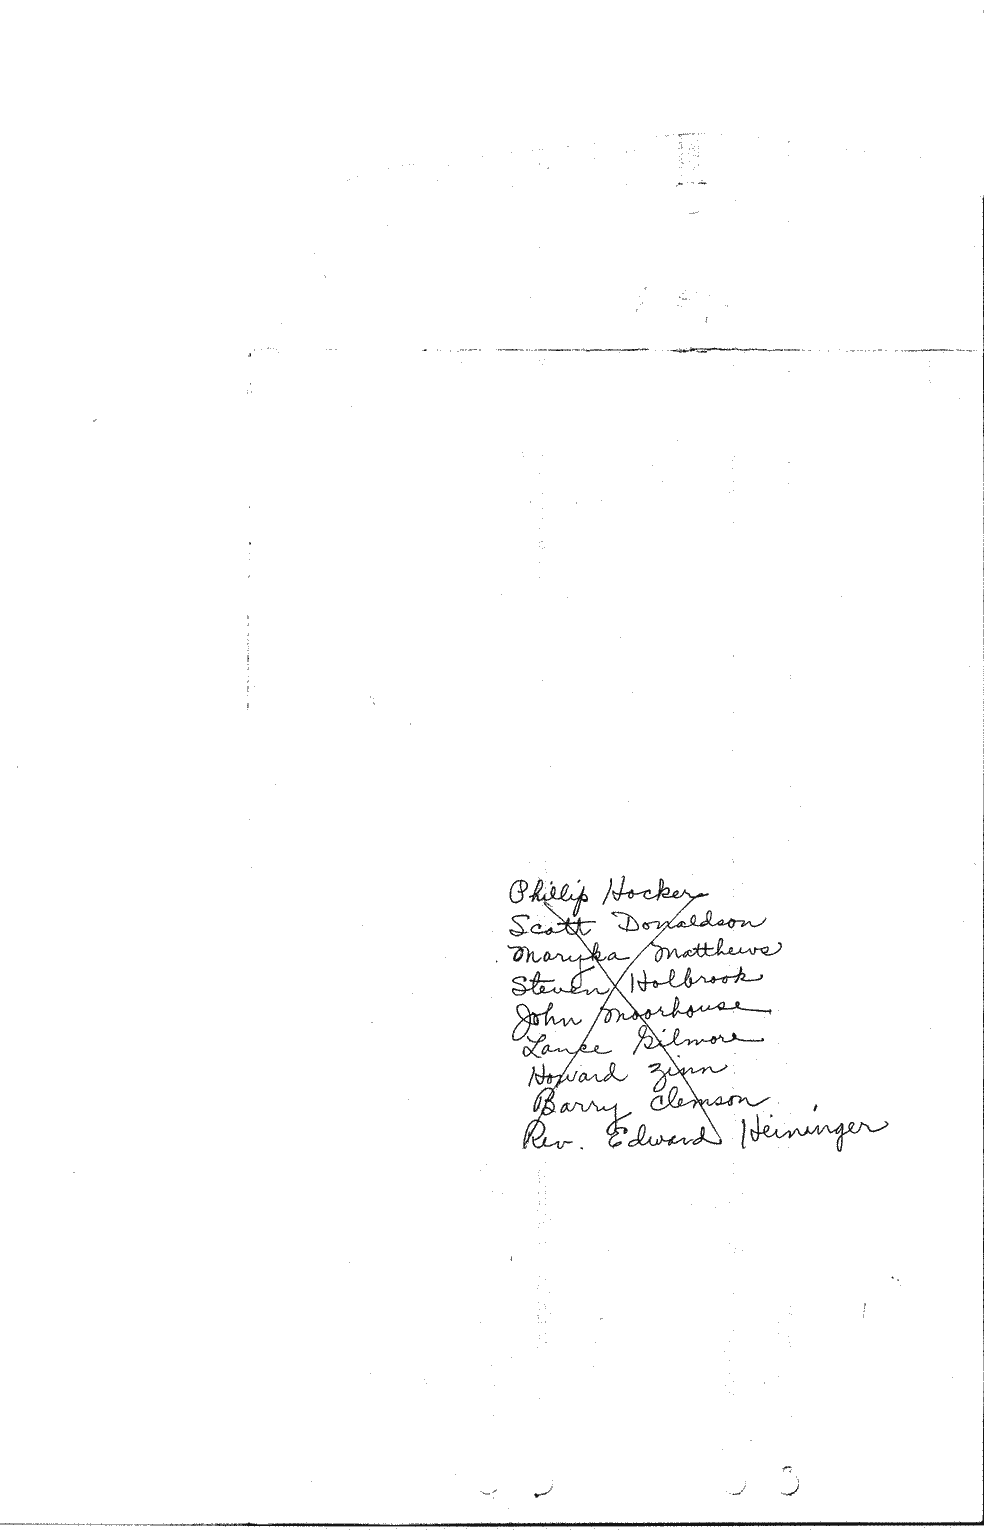 Phillip Hocker
Scott Donaldson
Maryka Matthews
Steven Holbrook
John Moorhouse
Lance Gilmore
Howard Zinn
Barry Clemson
Rev. Edward Heininger